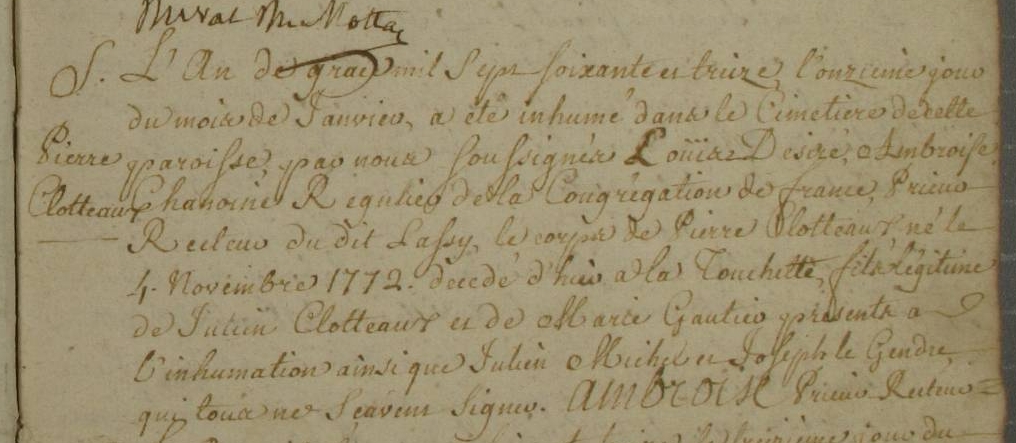 S. L'An de grace mil sept soixante et treize, l'onzieme jour
du mois de Janvier, a été inhumé dans le Cimetiere de cette
Pierre paroisse, par nous soussignés Loüis Desiré, Ambroise
Clotteaux Chanoine Regulier de la Congrégation de france, Prieur
Recteur du dit Lassy, le corps de Pierre Clotteaux né le
4. Novembre 1772. decedé d'hier a la Touchette, fils légitime
de Julien Clotteaux et de Marie Gautier presents a
l'inhumation ainsi que Julien Michel et Joseph le Gendre
qui tous ne scavent signer. AMBROISE Prieur Recteur